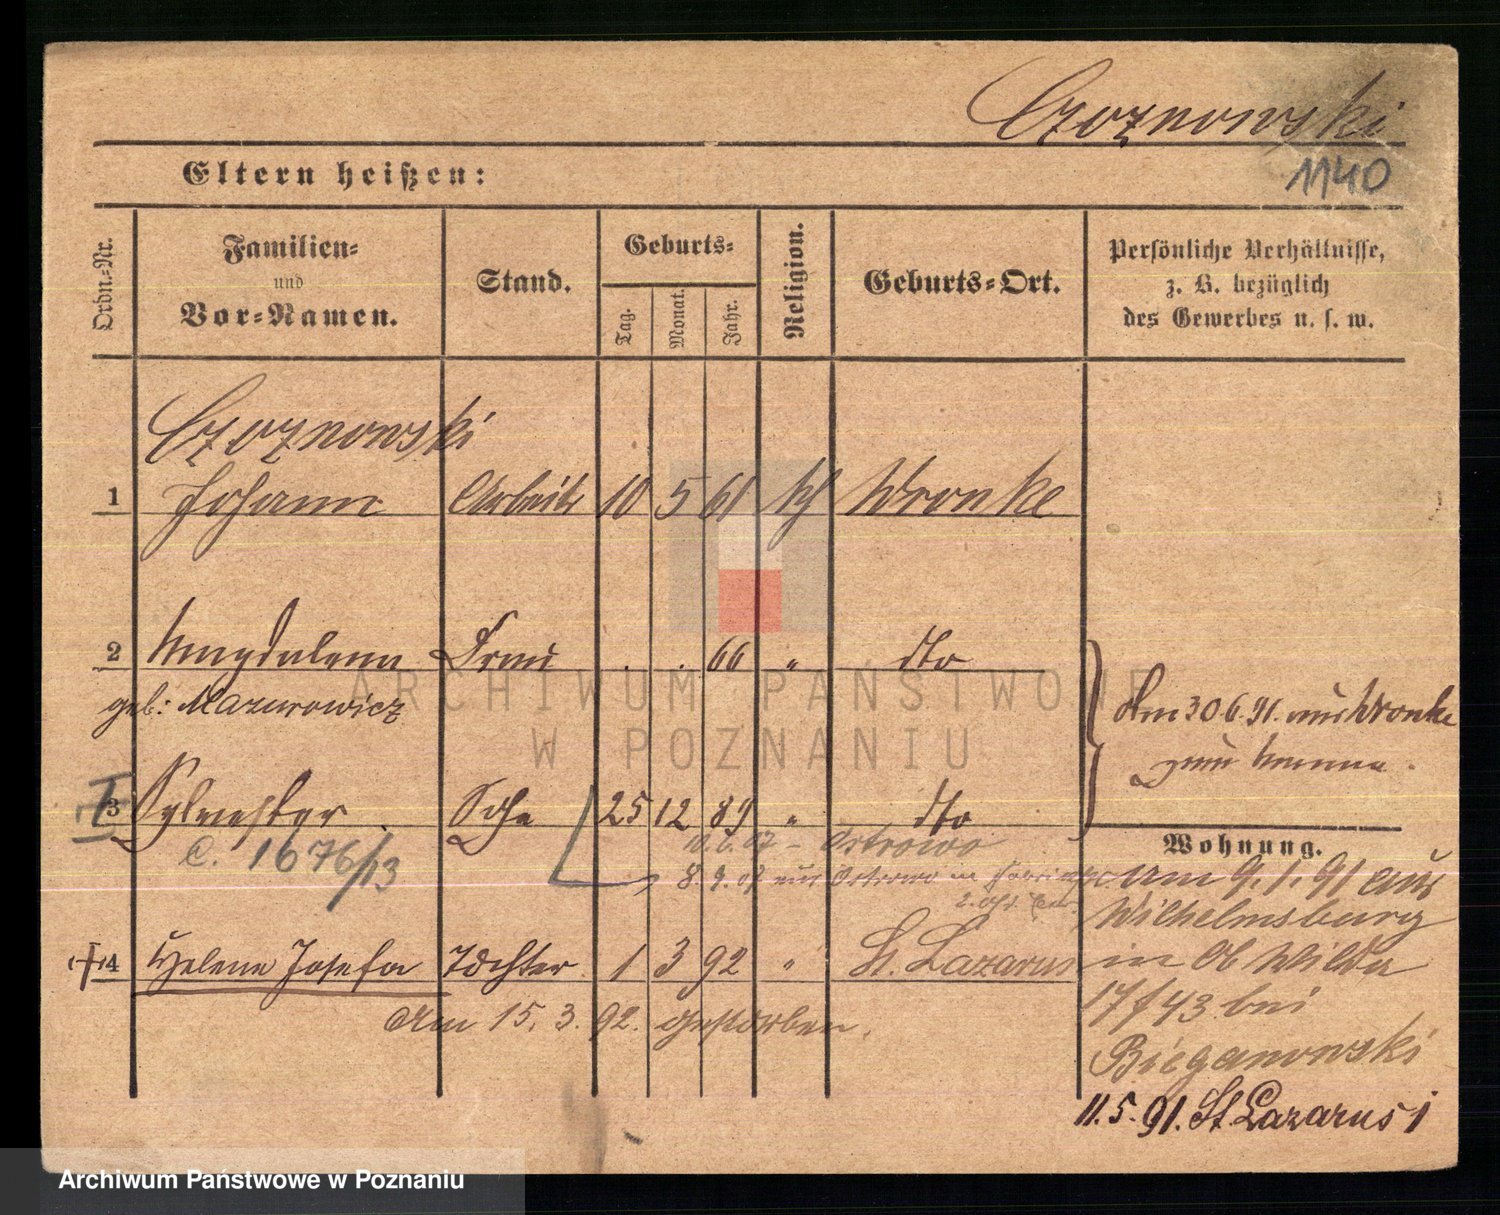 Czoznowski
1140
Eltern heißen:
Ordn.-Nr.
Familien-
und
Vor-Namen.
Stand.
Geburts-
Tag.
Monat.
Jahr.
Religion.
Geburts-Ort.
Persönliche Verhältnisse,
z. B. bezüglich
des Gewerbes u. s. w.
Czoznowski
1 Johann Arbeiter 10 5 61 kh Wronke
2 Magdalena Frau . . 66 " dto
geb: Mazurowicz
Am 30.6.91. aus Wronke
3 Sylvester Sohn 25 12 89 " dto
Ostrowo
C. 1676/13
Wohnung.
8.9.07 aus Ostrowo
am 9.1.91 aus
Wilhelmsburg
4 Helene Josefa Tochter 1 3 92 " St. Lazarus
in Ob Wilda
Am 15.3.92. gestorben.
17/43 bei
Bieganowski
11.5.91. St Lazarus 1
ARCHIWUM PAŃSTWOWE
W POZNANIU
Archiwum Państwowe w Poznaniu